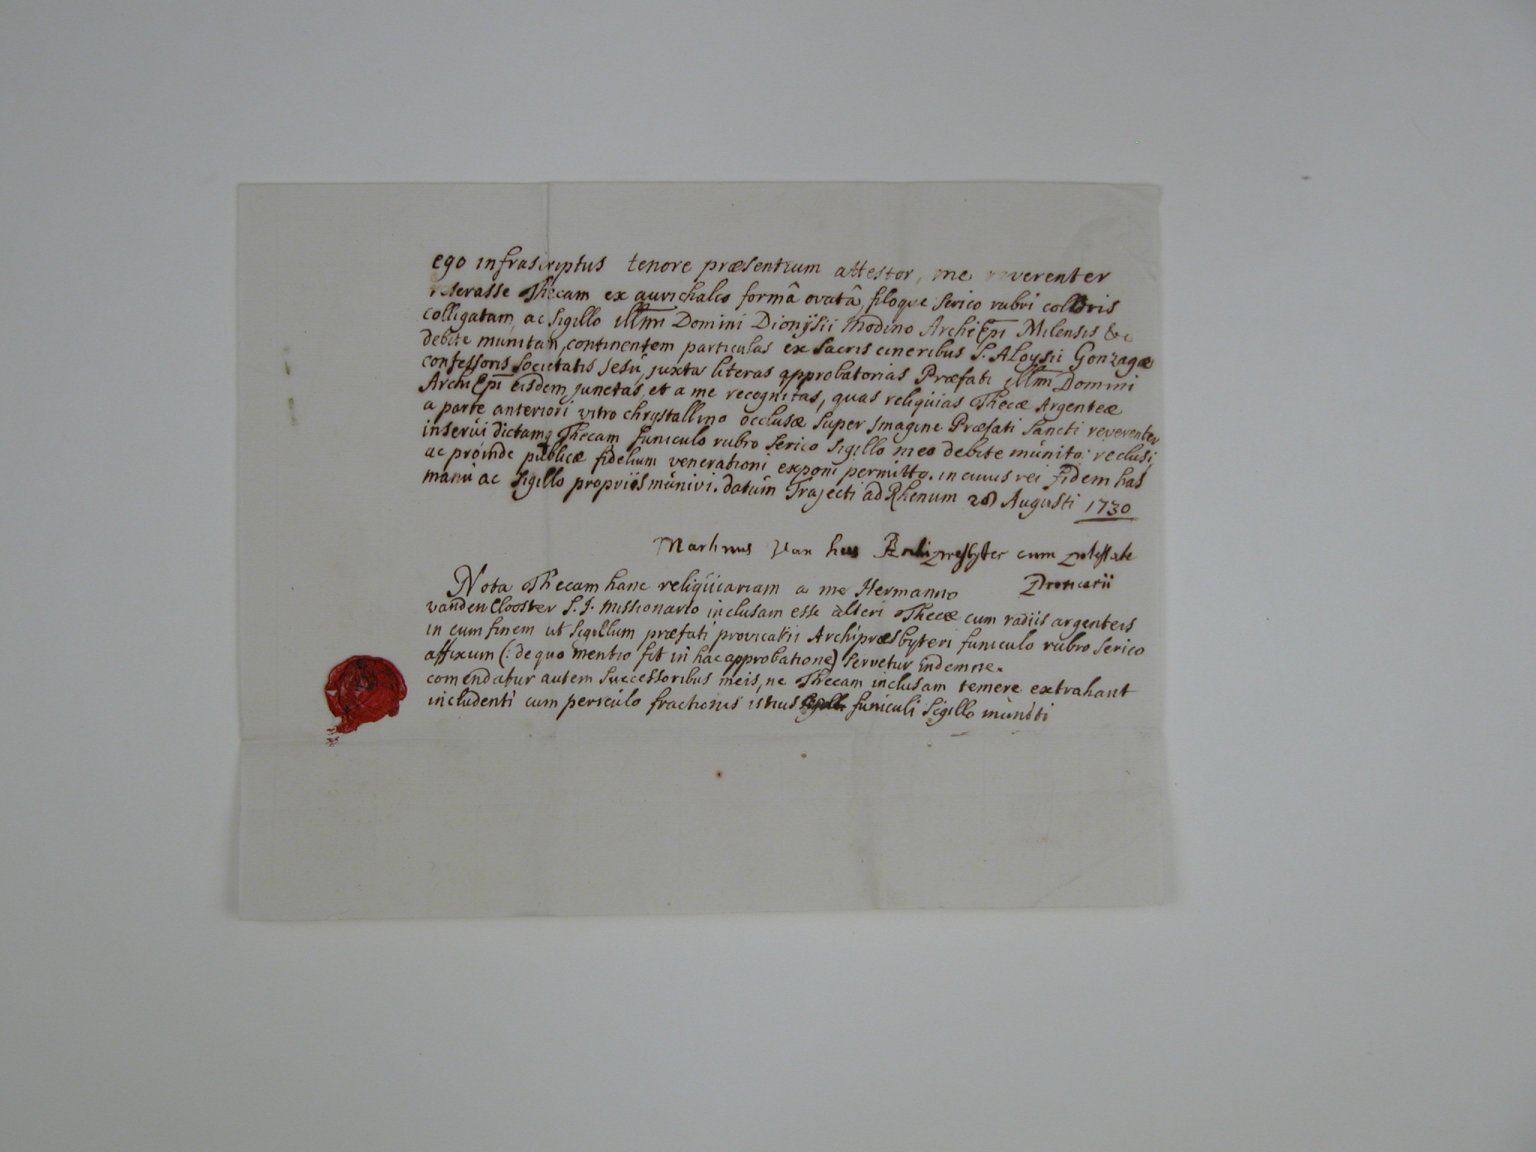 ego infrascriptus tenore præsentium attestor, me reverenter
reserasse Thecam ex aurichalco formâ ovatâ, filoque serico rubri coloris
colligatam, ac sigillo illmi Domini Dionÿsii Modino ArchiEpi Milensis &c
debite munitam, continentem particulas ex sacris cineribus S. Aloysii Gonzagæ
confessoris societatis Jesu, juxta literas approbatorias Præfati illmi Domini
ArchiEpi eisdem junctas, et a me recognitas, quas reliquias Thecæ Argenteæ
a parte anteriori vitro chrystallino occlusæ super imagine Præfati Sancti reverenter
inserui dictamq Thecam funiculo rubro serico sigillo meo debite munito reclusi,
ac proinde publicæ fidelium venerationi exponi permitto. in cuius rei fidem has
manu ac sigillo propriis munivi. datum Trajecti ad Rhenum 28 Augusti 1730
Martinus Van hus Archipresbyter cum potestate
Provicarii
Nota Thecam hanc reliquiariam a me Hermanno
vanden Clooster S.J. missionario inclusam esse alteri Thecæ cum radiis argenteis
in eum finem ut sigillum præfati provicarii Archipræsbyteri funiculo rubro serico
affixum (: de quo mentio fit in hac approbatione) servetur indemne.
comendatur autem successoribus meis, ne Thecam inclusam temere extrahant
includenti cum periculo fractionis istius funiculi sigillo muniti